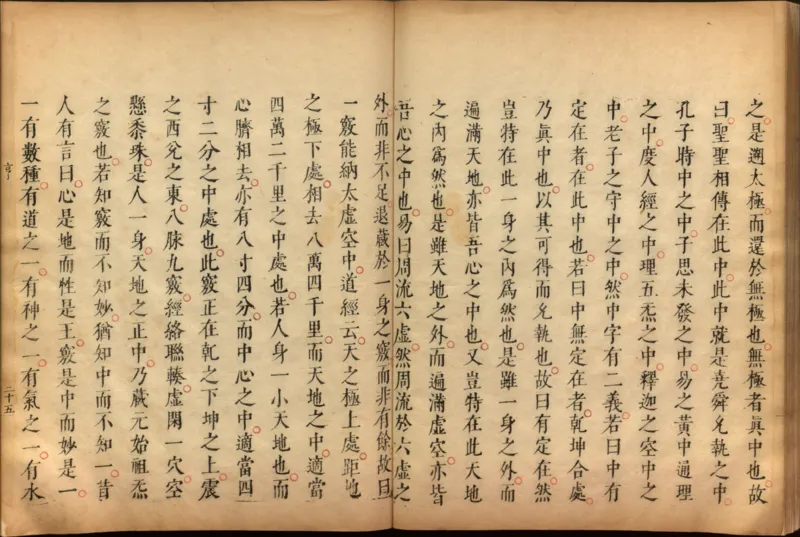 之是遡太極而還於無極也無極者真中也故
曰聖聖相傳在此中此中就是堯舜允執之中
孔子時中之中子思未發之中易之黃中通理
之中度人經之中理五炁之中釋迦之空中之
中老子之守中之中然中字有二義若曰中有
定在者在此中也若曰中無定在者乾坤合處
乃真中也以其可得而允執也故曰有定在然
豈特在此一身之內爲然也是雖一身之外而
遍滿天地亦皆吾心之中也又豈特在此天地
之內爲然也是雖天地之外而遍滿虛空亦皆
吾心之中也易曰周流六虛然周流於六虛之
外而非不足退藏於一身之竅而非有餘故曰
一竅能納太虛空中道經云天之極上處距地
之極下處相去八萬四千里而天地之中適當
四萬二千里之中處也若人身一小天地也而
心臍相去亦有八寸四分而中心之中適當四
寸二分之中處也此竅正在乾之下坤之上震
之西兌之東八脉九竅經絡聯輳虛閑一穴空
懸黍珠是人一身天地之正中乃藏元始祖炁
之竅也若知竅而不知妙猶知中而不知一昔
人有言曰心是地而性是王竅是中而妙是一
一有數種有道之一有神之一有氣之一有水
二十五